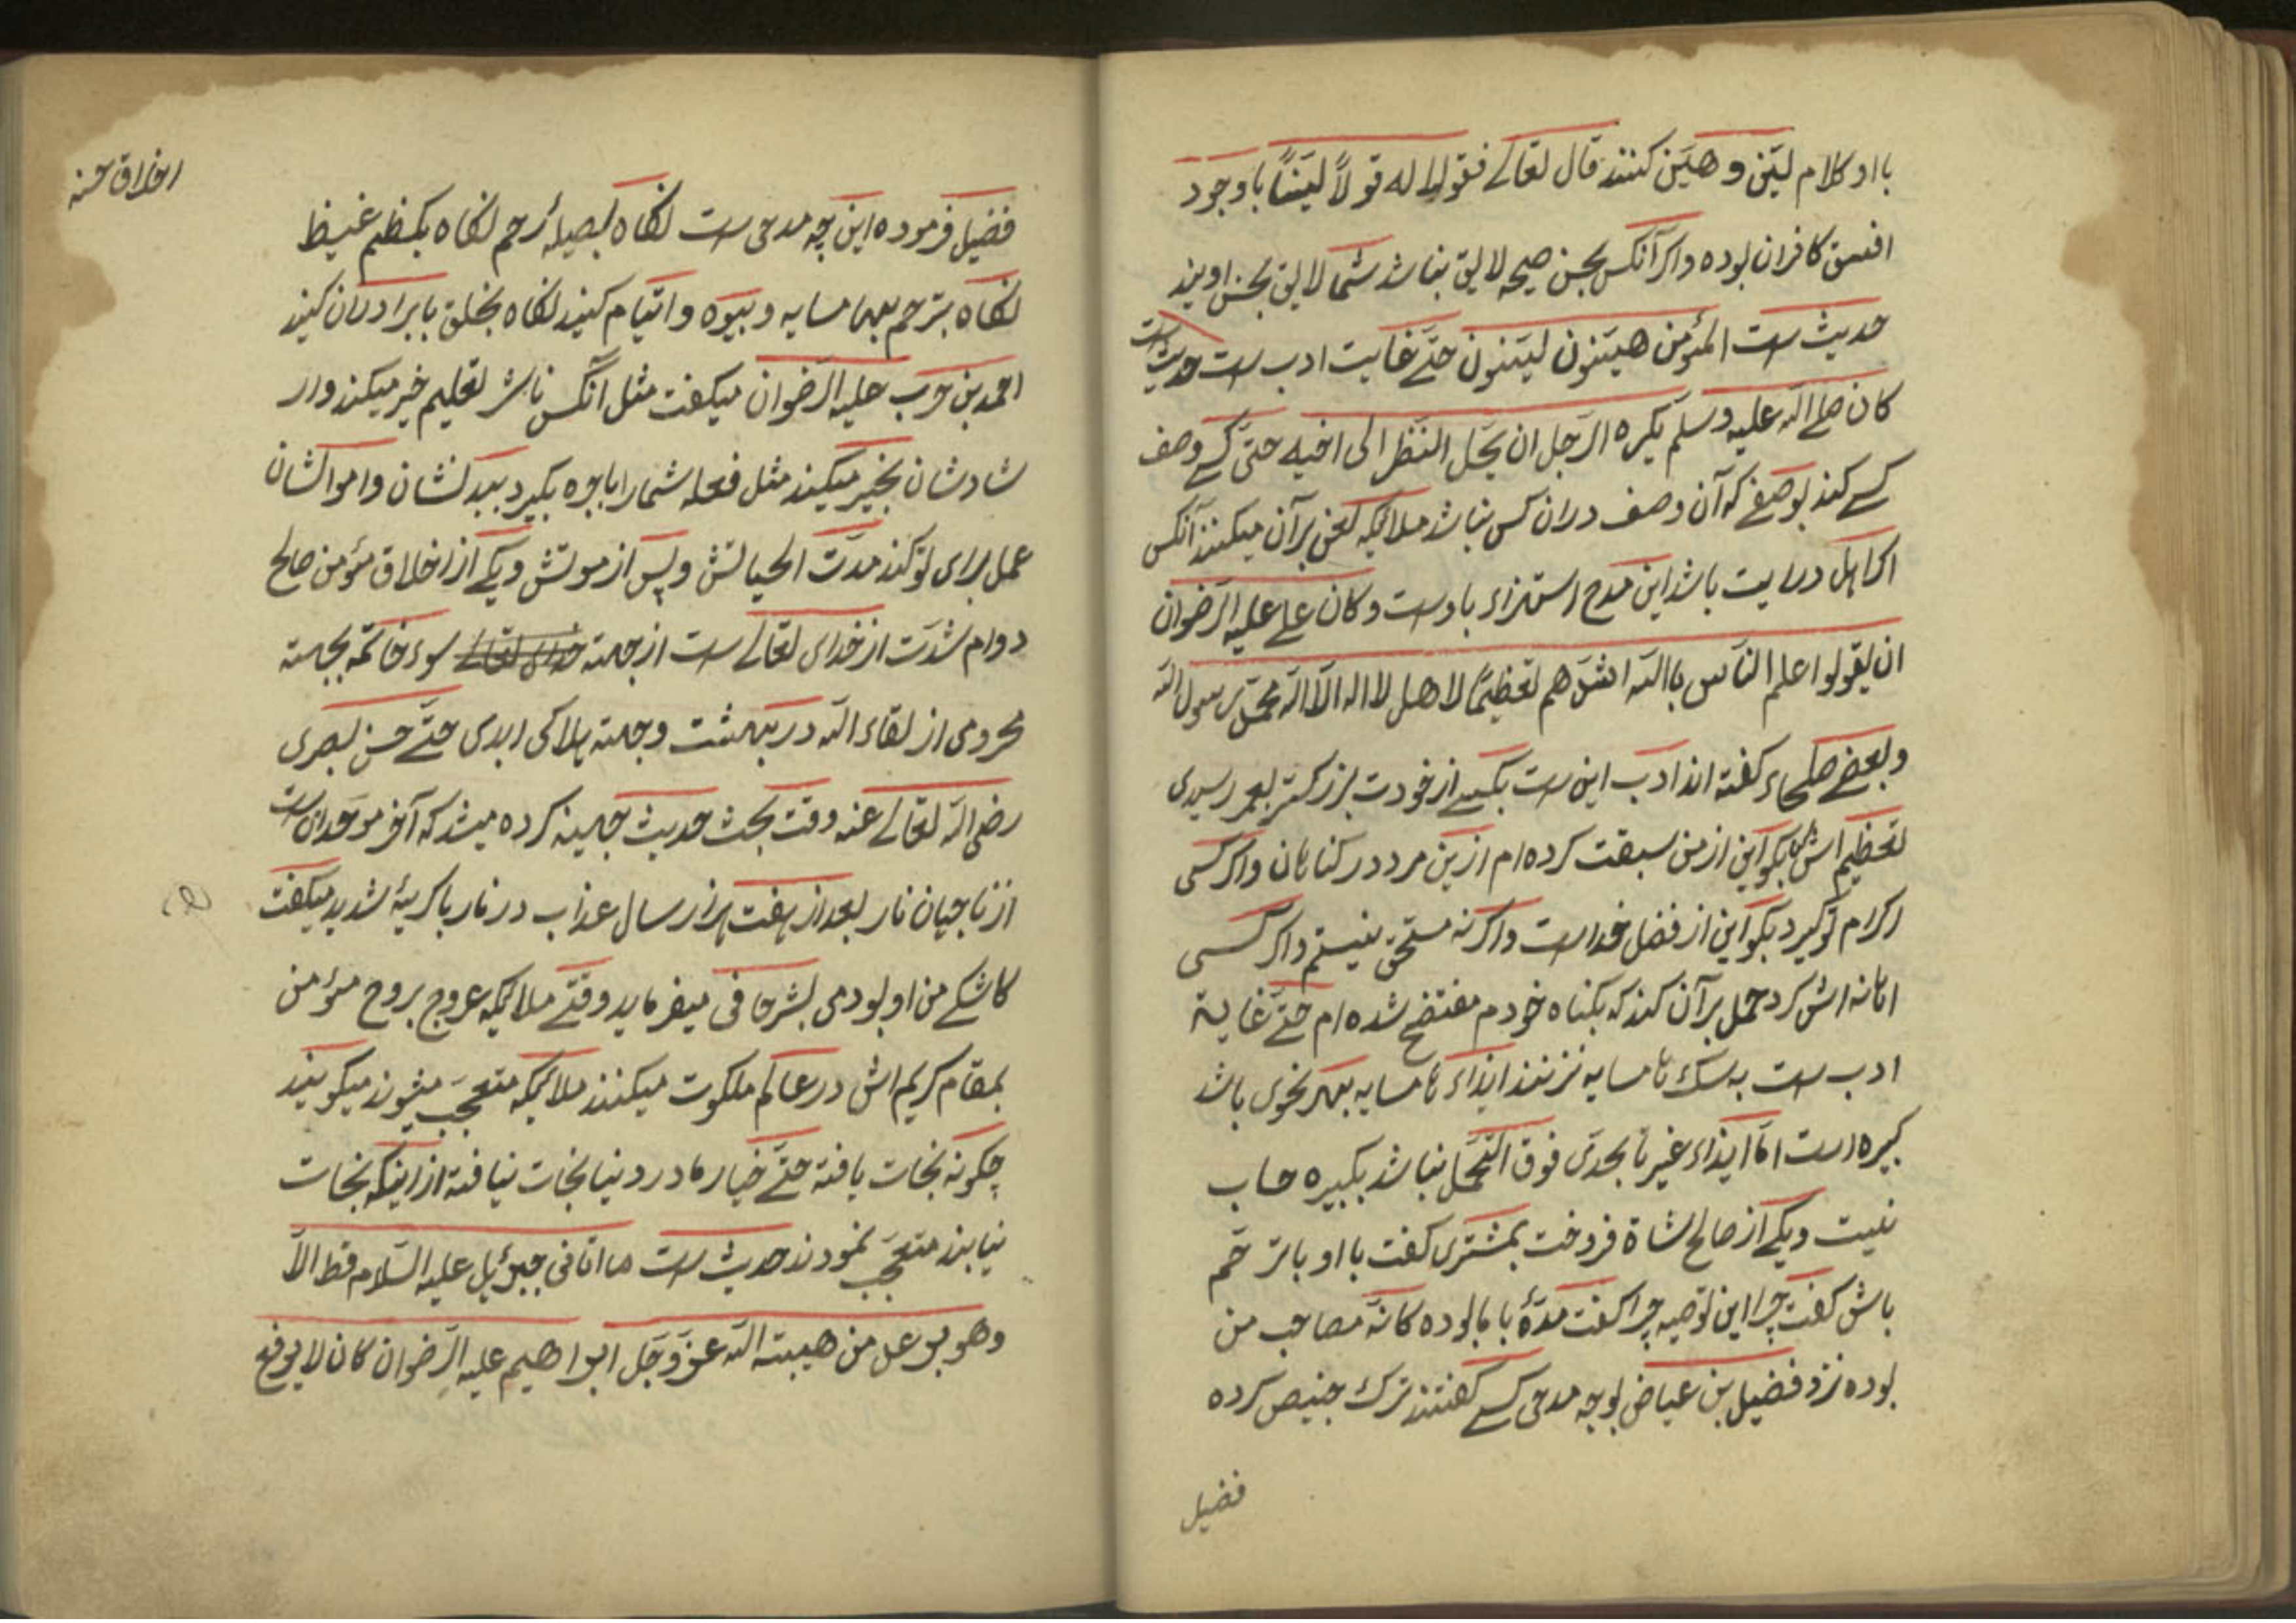 با او کلام لیّن و هیّن کنند قال تعالے فقولا له قولاً لیّناً باوجود
افسق کافران بوده و اگر آنکس بحسن صیحه لایق نباشد شما لایق بحسن اویند
حدیث است المؤمن هیّنون لیّنون حتّے غایت ادب است حدیث است
کان صلے اللّه علیه وسلّم یکره الرّجل ان یحّل النّظر الی اخیه حتّی کسے وصف
کسے کند بوصفے که آن وصف دران کس نباشد ملائکه لعن بر آن میکنند آنکس
اگر اهل درایت باشد این مدح استهزاء باوست و کان علے علیه الرّضوان
ان یقولوا اعلم النّاس باللّه اشدّهم تعظیمًا لاهل لا اله الّا اللّه محمّد رسول اللّه
وبعضے صلحاء گفته اند ادب این است بکسے از خودت بزرگتر بعمر رسیدی
تعظیم اش بگو این از من سبقت کرده ام ازین مرد در گناهان و اگر کسی
اکرام تو گیرد بگو این از فضل خداست و اگر نه مستحق نیستم و اگر کسی
اهانه اش کرد حمل بر آن کند که بگناه خودم مفتضح شده ام حتّے غایة
ادب است به سگ هامسایه نزنند ایذاء هامسایه بهر نحوی باشد
کبیره است امّا ایذاء غیر تا بحدّی فوق التّحمّل نباشد بکبیره حساب
نیست و یکے از صالح شاة فروخت بمشتری گفت با او با ترحّم
باش گفت چرا این توصیه چرا گفت مدّة با ما بوده کانّه مصاحب من
بوده نزد فضیل بن عیاض بوجه مدحی کسے گفتند ترک جنیص کرده
فضیل
اخلاق حسنه
فضیل فرموده این چه مدحی است نگاه بصیلهٔ رحم نگاه بکظم غیظ
نگاه بترحم بهامسایه و بیوه و ایتام کنید نگاه بخلق با برادران کنید
احمد بن حرب علیه الرّضوان میگفت مثل آنکس ناش تعلیم خیر میکند و ار
شادشان بخیر میکند مثل فعله شما را با بوه بگیرد ببدنشان و اموالشان
عمل برای تو کند مدّت الحیاتش و پس از موتش و یکے از اخلاق مؤمن صالح
دوام شدّت از خدای تعالے است از جهته خدای تعالے سوء خاتمه بجهته
محرومی از لقاء اللّه در بهشت و جهته هلاکی ابدی حتّے حسن بصری
رضی اللّه تعالے عنه وقت بحث حدیث جهینه کرده میشد که آخر موحدان است
از ناجیان نار بعد از هفت هزار سال عذاب در نار با گریهٔ شدید میگفت
کاشکے من او بودمی بشر حافی میفرماید وقتے ملائکه عروج بروح مؤمن
بمقام کریم اش در عالم ملکوت میکنند ملائکه متعجّب میشوند میگویند
چگونه نجات یافته حتّے خیار ما در دنیا نجات نیافته از اینکه نجات
نیابند متعجّب نمودند حدیث است ما اتانی جبرئیل علیه السّلام قط الّا
وهو یرعد من هیبته اللّه عزّ وجّل ابراهیم علیه الرّضوان کان لا یرفع